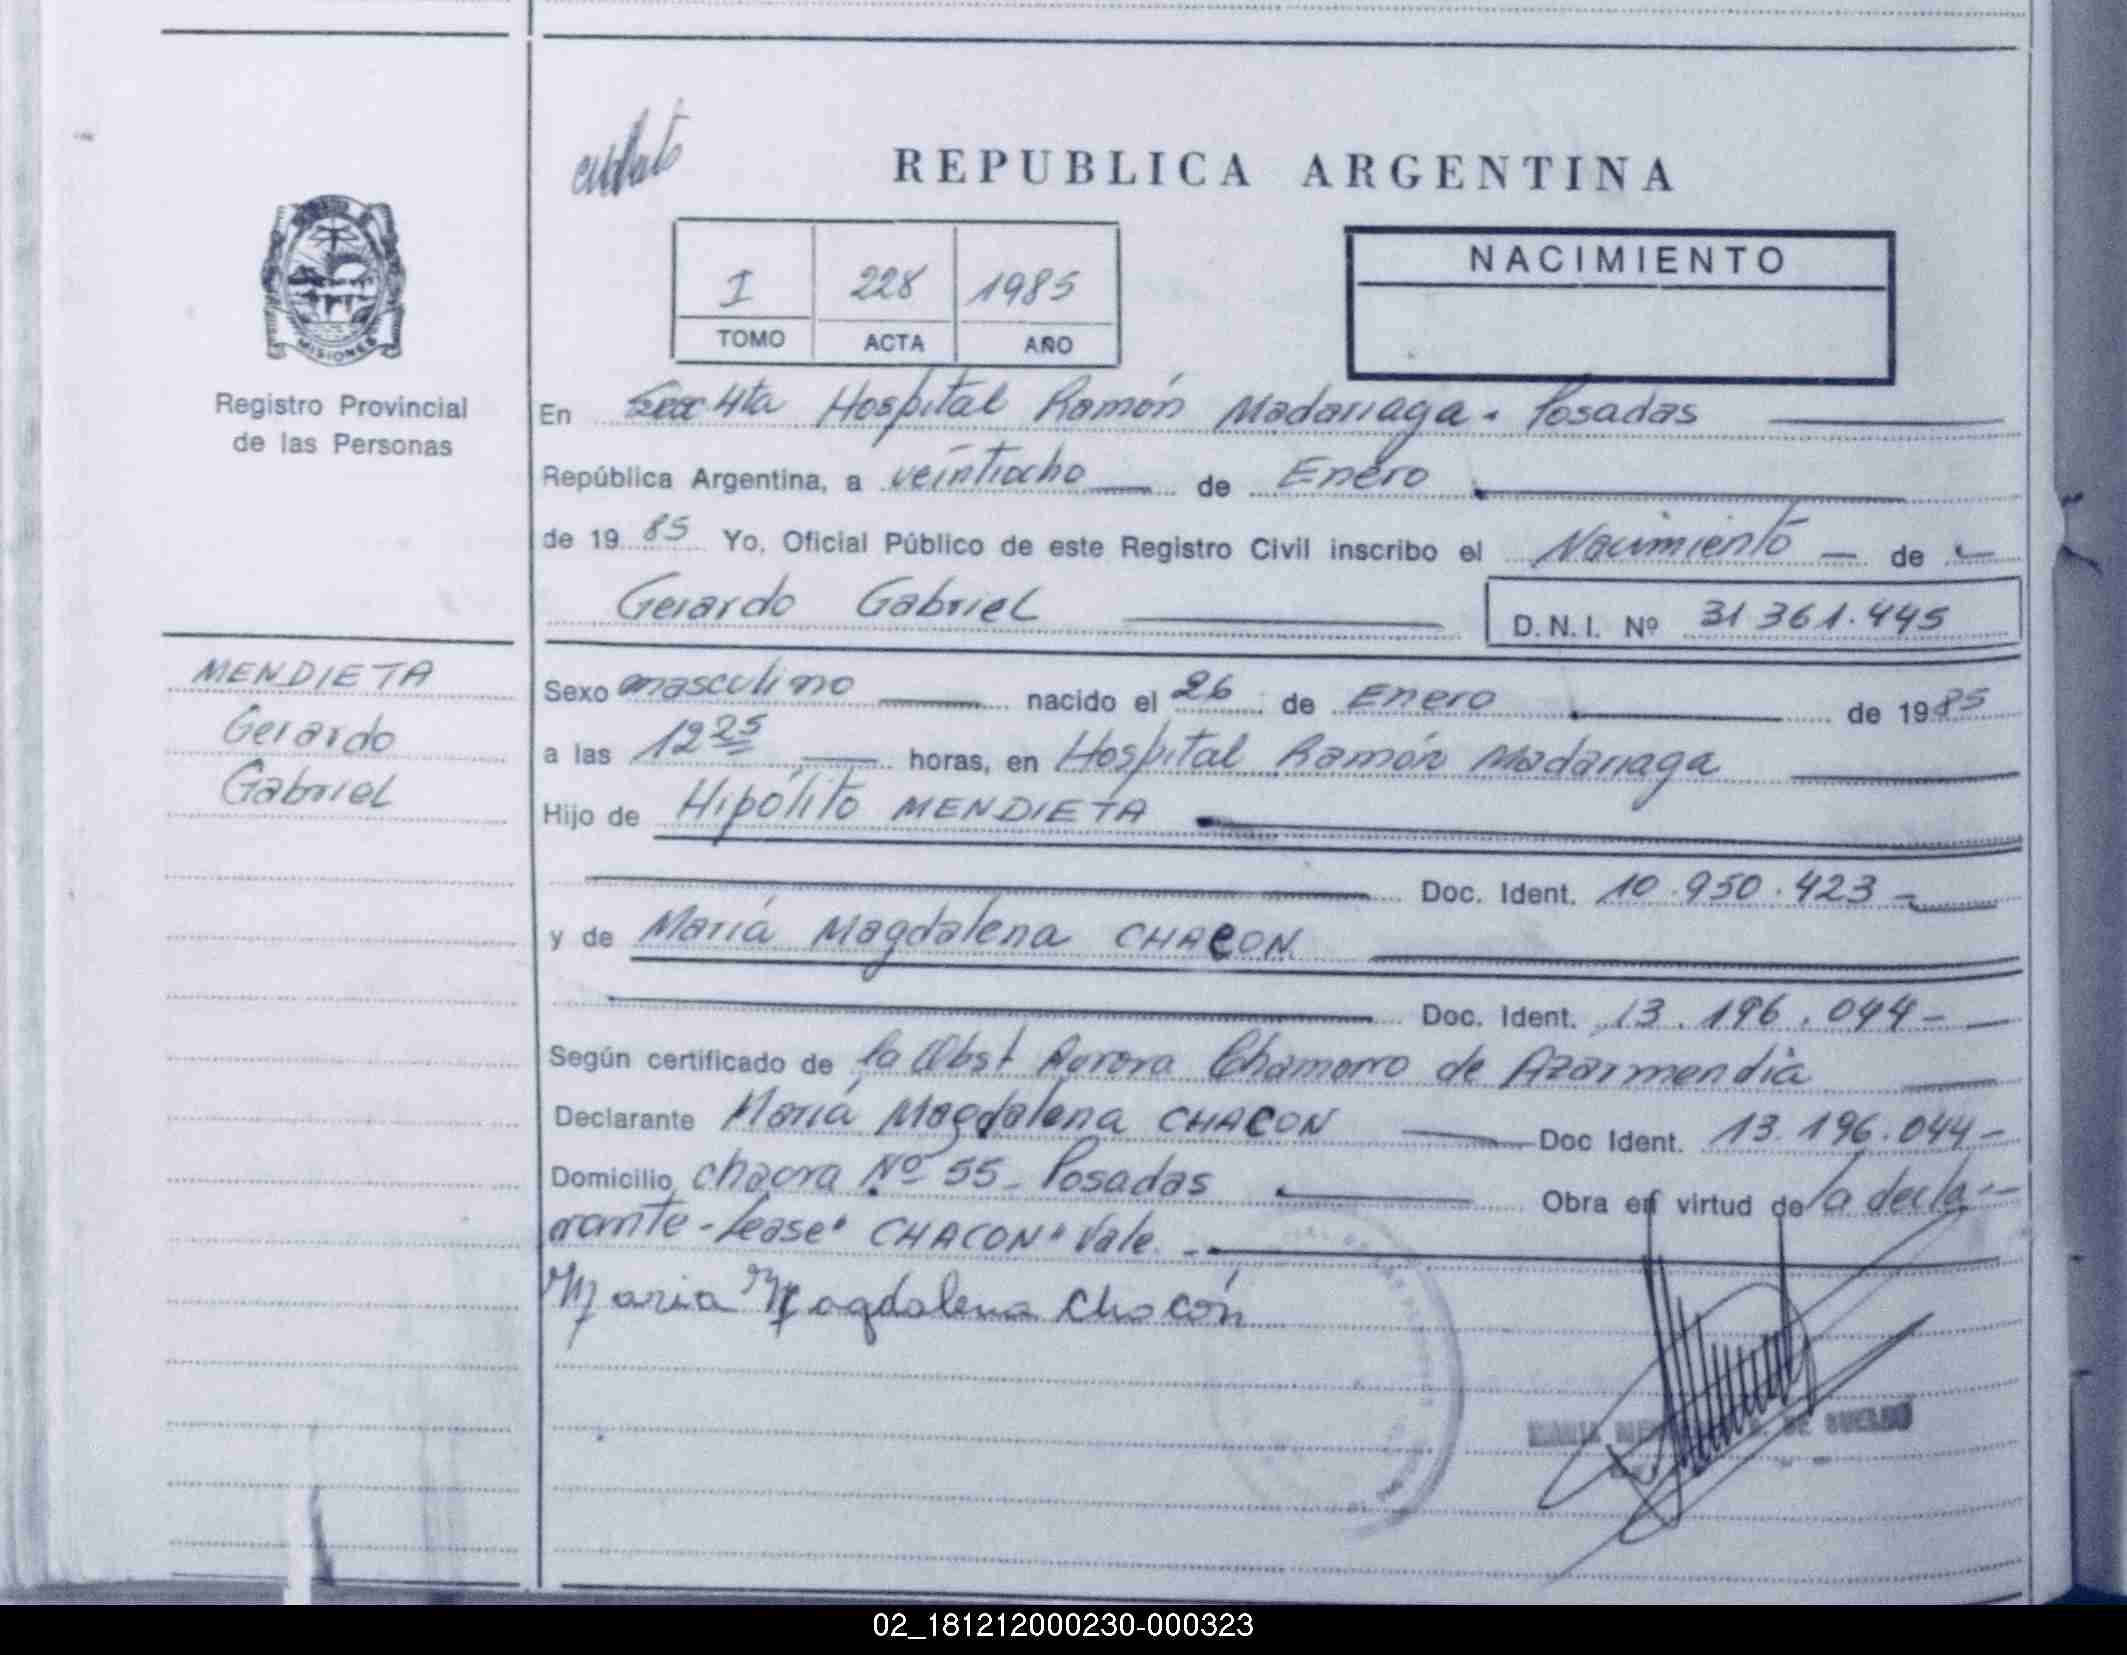 REPUBLICA ARGENTINA
I 228 1985
TOMO ACTA AÑO
NACIMIENTO
MISIONES
Registro Provincial
de las Personas
En Secc 4ta Hospital Ramón Madariaga - Posadas
República Argentina, a veintiocho de Enero
de 1985 Yo, Oficial Público de este Registro Civil inscribo el Nacimiento de
Gerardo Gabriel
D.N.I. Nº 31 361.445
MENDIETA
Gerardo
Gabriel
Sexo masculino nacido el 26 de Enero de 1985
a las 12 25 horas, en Hospital Ramón Madariaga
Hijo de Hipólito MENDIETA
Doc. Ident. 10.950.423-
y de María Magdalena CHACON
Doc. Ident. 13.196.044-
Según certificado de la Obst Aurora Chamorro de Azarmendia
Declarante María Magdalena CHACON Doc Ident. 13.196.044-
Domicilio chacra Nº 55- Posadas Obra en virtud de la decla-
rante - Lease "CHACON" Vale.
Maria Magdalena Chacón
MARIA DE SUELDO
02_181212000230-000323